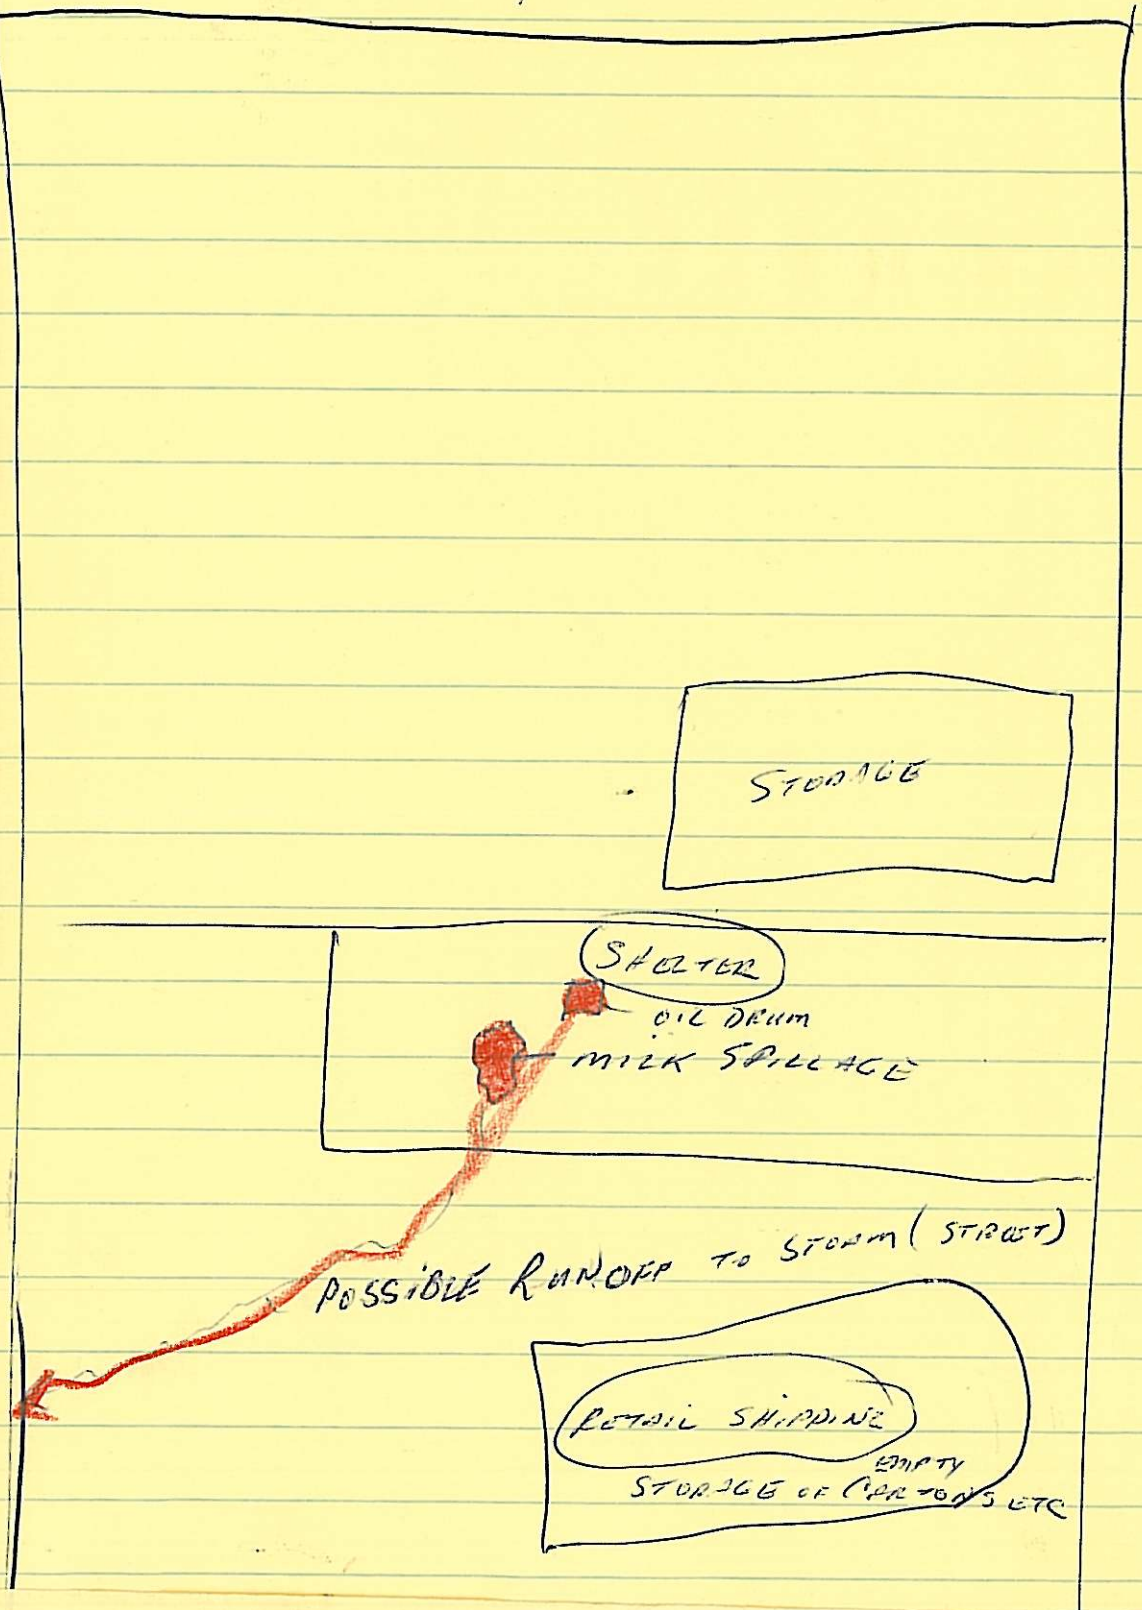 STORAGE
SHELTER
OIL DRUM
MILK SPILLAGE
POSSIBLE RUNOFF TO STORM (STREET)
RETAIL SHIPPING
EMPTY
STORAGE OF CARTONS ETC